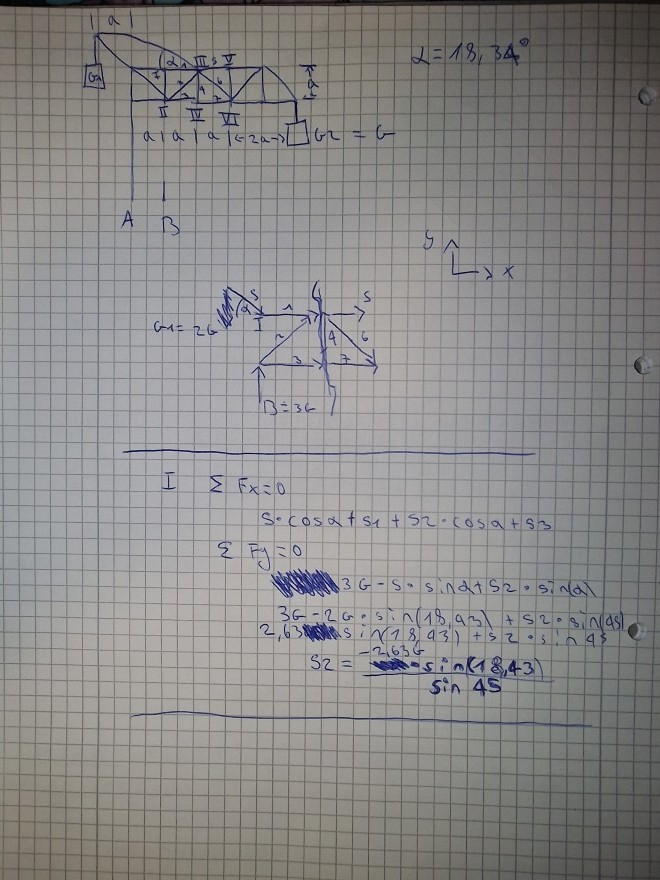 | a |
α = 18,34°
G1
α 1 III 5 V
1 2 4 6
3 7
a
II IV VI
a | a | a | <-2a-> G2 = G
A B
y
x
S 1 S
α I
G1 = 2G
2 4 6
3 7
B = 3G
I Σ Fx = 0
S · cosα + S1 + S2 · cosα + S3
Σ Fy = 0
3G - S · sinα + S2 · sin(α)
3G - 2G · sin(18,43) + S2 · sin(45)
2,63 sin(18,43) + S2 · sin 45
-2,63G
S2 = · sin(18,43)
sin 45